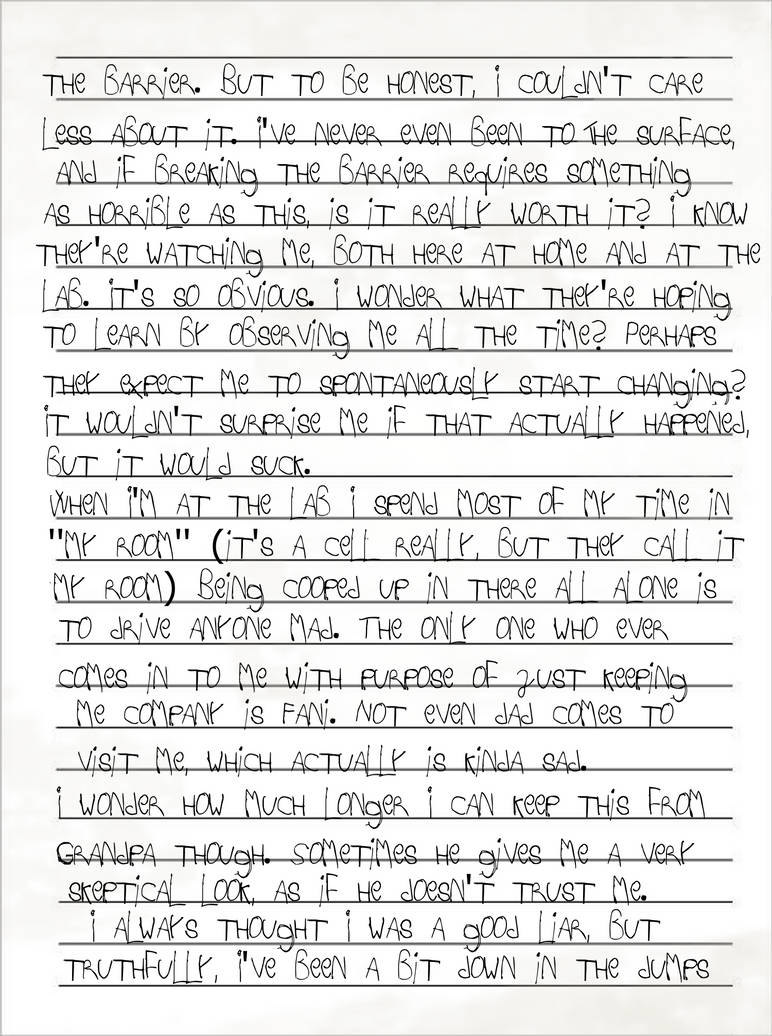 THE BARRIER. BUT TO BE HONEST, I COULDN'T CARE
LESS ABOUT IT. I'VE NEVER EVEN BEEN TO THE SURFACE,
AND IF BREAKING THE BARRIER REQUIRES SOMETHING
AS HORRIBLE AS THIS, IS IT REALLY WORTH IT? I KNOW
THEY'RE WATCHING ME, BOTH HERE AT HOME AND AT THE
LAB. IT'S SO OBVIOUS. I WONDER WHAT THEY'RE HOPING
TO LEARN BY OBSERVING ME ALL THE TIME? PERHAPS
THEY EXPECT ME TO SPONTANEOUSLY START CHANGING?
IT WOULDN'T SURPRISE ME IF THAT ACTUALLY HAPPENED,
BUT IT WOULD SUCK.
WHEN I'M AT THE LAB I SPEND MOST OF MY TIME IN
"MY ROOM" (IT'S A CELL REALLY, BUT THEY CALL IT
MY ROOM) BEING COOPED UP IN THERE ALL ALONE IS
TO DRIVE ANYONE MAD. THE ONLY ONE WHO EVER
COMES IN TO ME WITH PURPOSE OF JUST KEEPING
ME COMPANY IS FANI. NOT EVEN DAD COMES TO
VISIT ME, WHICH ACTUALLY IS KINDA SAD.
I WONDER HOW MUCH LONGER I CAN KEEP THIS FROM
GRANDPA THOUGH. SOMETIMES HE GIVES ME A VERY
SKEPTICAL LOOK, AS IF HE DOESN'T TRUST ME.
I ALWAYS THOUGHT I WAS A GOOD LIAR, BUT
TRUTHFULLY, I'VE BEEN A BIT DOWN IN THE DUMPS